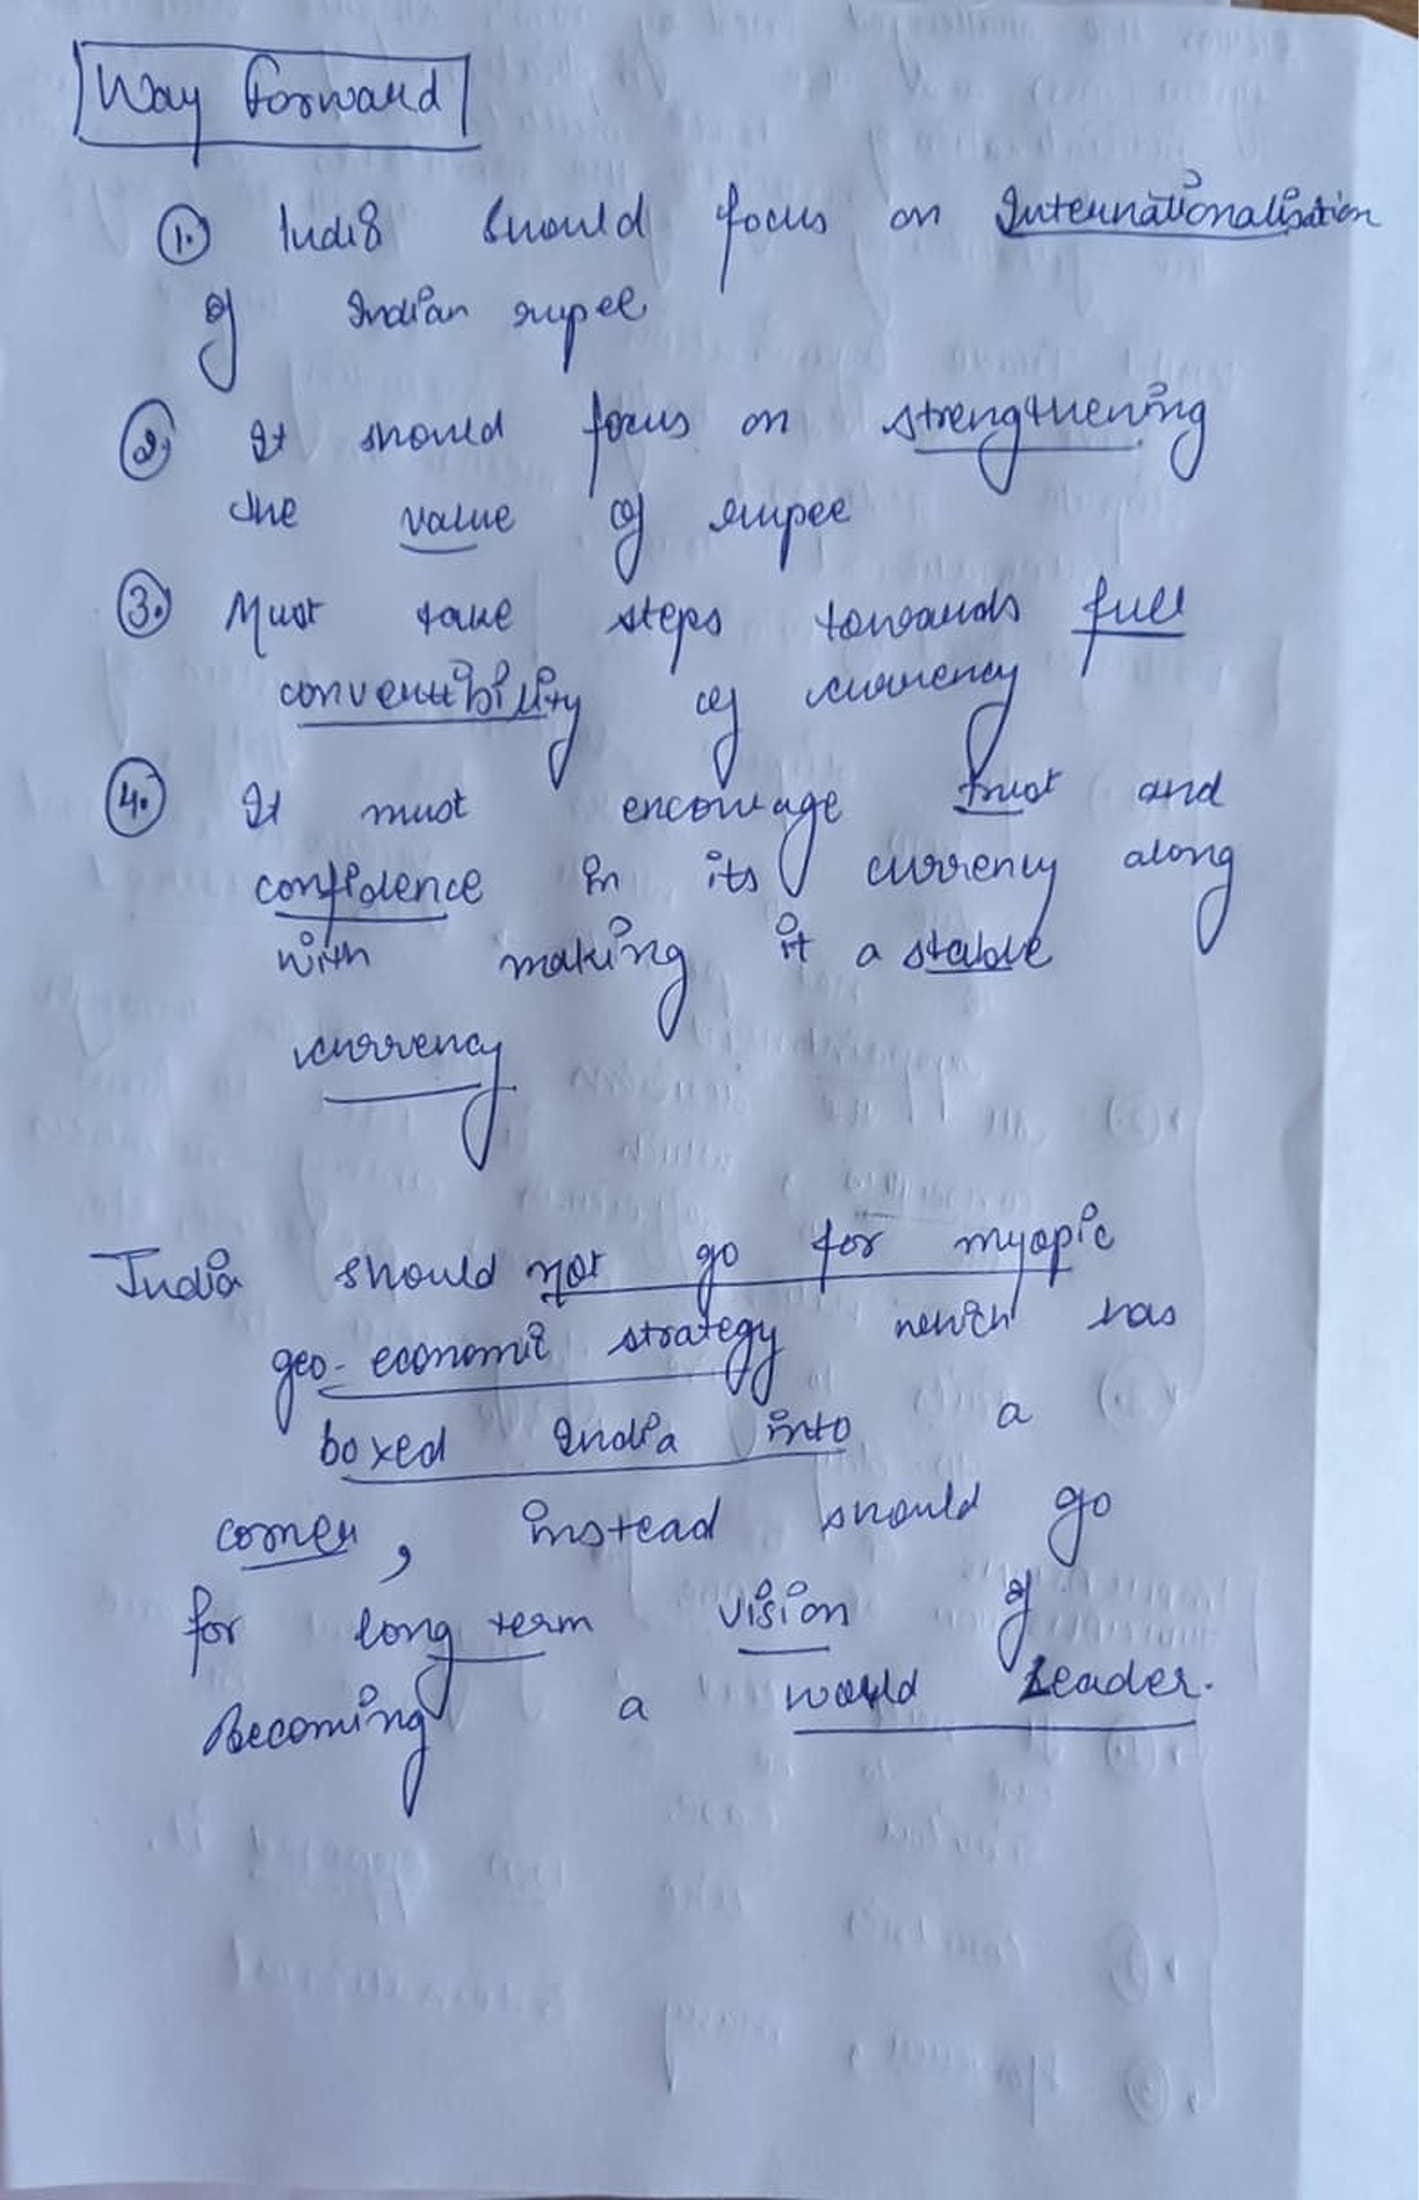 Way Forward
1. India should focus on Internationalisation
of Indian rupee
2. It should focus on strengthening
the value of rupee
3. Must take steps towards full
convertibility of currency
4. It must encourage trust and
confidence in its currency along
with making it a stable
currency
India should not go for myopic
geo-economic strategy which has
boxed India into a
corner, instead should go
for long term vision of
Becoming a world Leader.